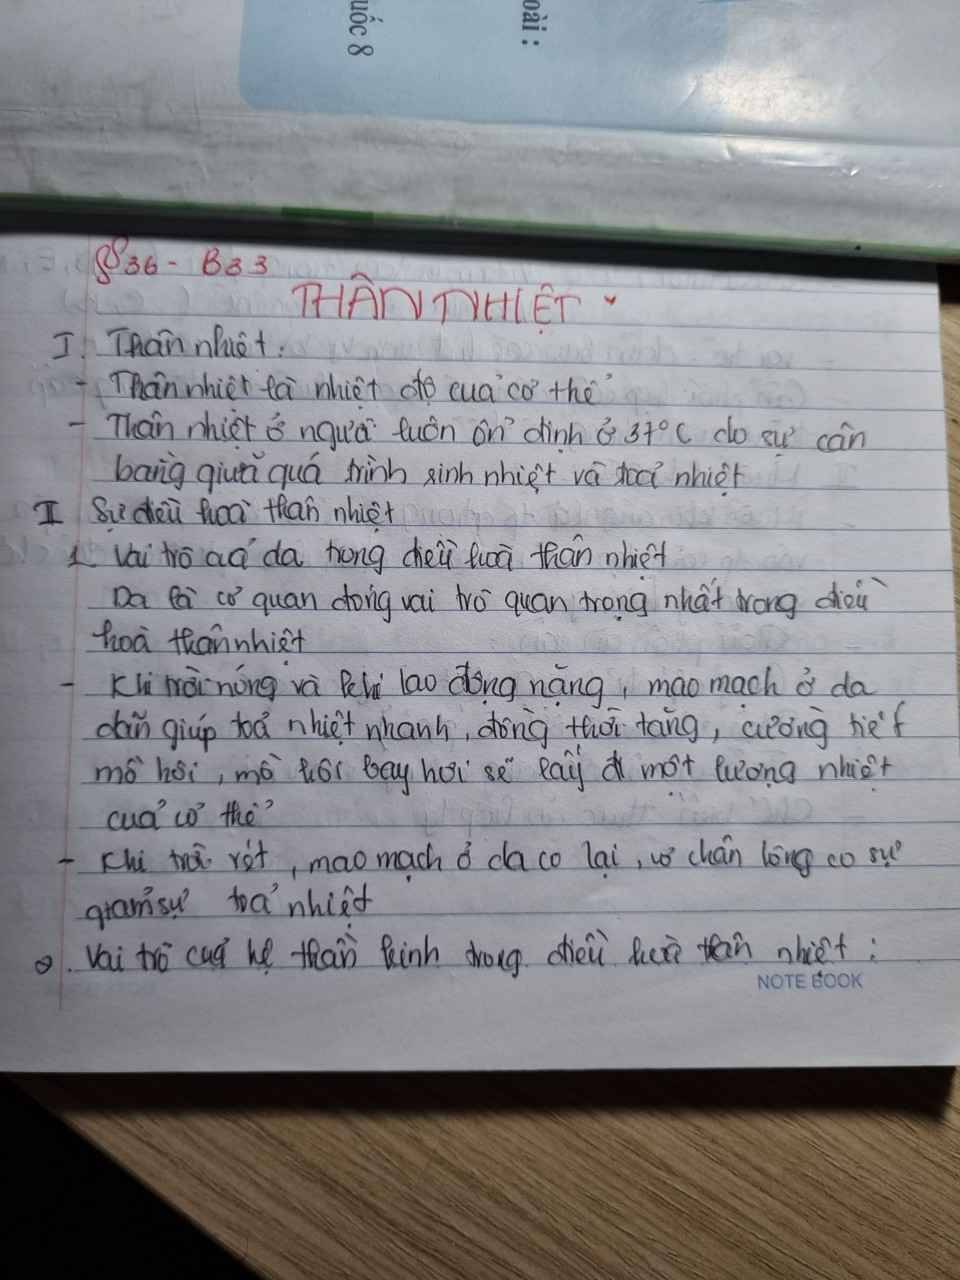 uốc 8
oài :
§36 - B33
THÂN NHIỆT
I. Thân nhiệt.
- Thân nhiệt là nhiệt độ của cơ thể
- Thân nhiệt ở người luôn ổn định ở 37°C do sự cân
bằng giữa quá trình sinh nhiệt và toả nhiệt
II Sự điều hoà thân nhiệt
1. Vai trò của da trong điều hoà thân nhiệt
Da là cơ quan đóng vai trò quan trọng nhất trong điều
hoà thân nhiệt
- Khi trời nóng và khi lao động nặng, mao mạch ở da
dãn giúp toả nhiệt nhanh, đồng thời tăng, cường tiết
mồ hôi, mồ hôi bay hơi sẽ lấy đi một lượng nhiệt
của cơ thể
- Khi trời rét, mao mạch ở da co lại, cơ chân lông co sự
giảm sự toả nhiệt
2. Vai trò của hệ thần kinh trong điều hoà thân nhiệt :
NOTE BOOK